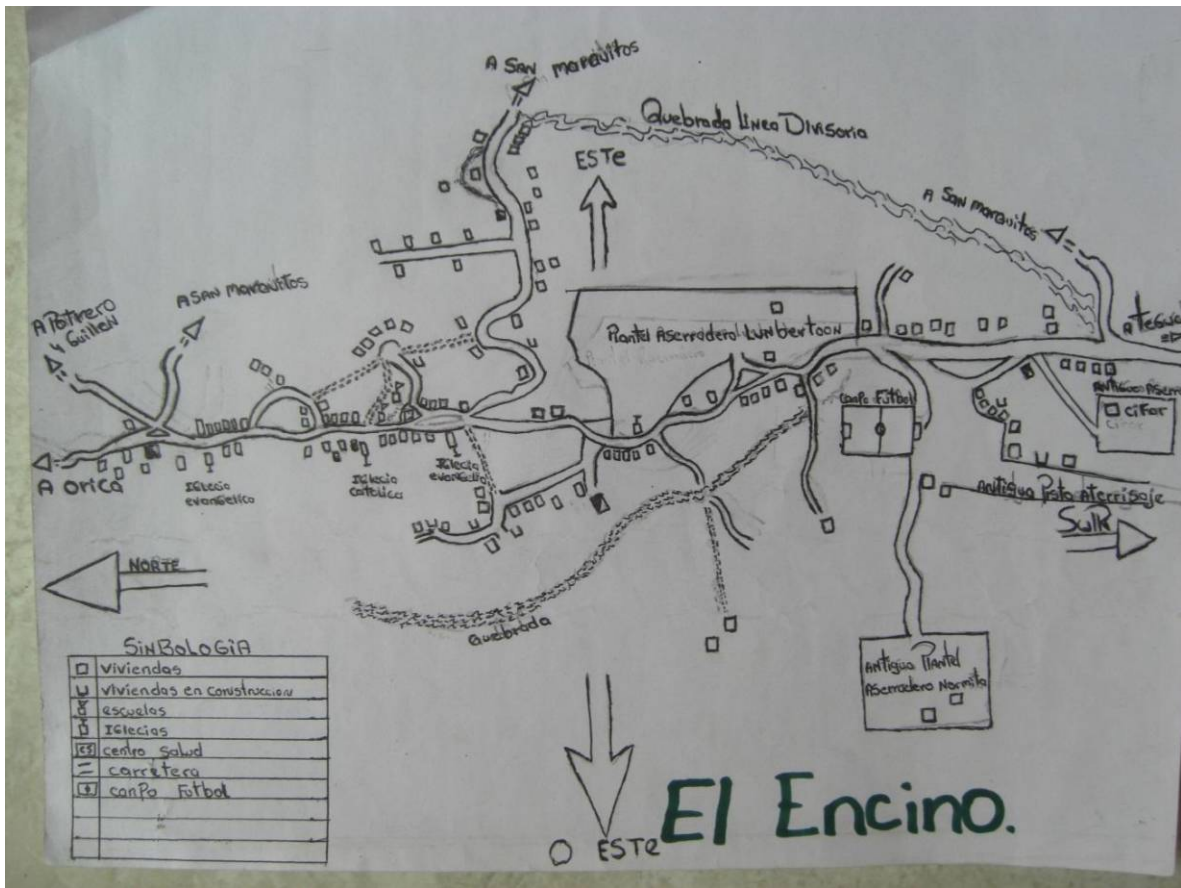 A SAN MARQUITOS
Quebrada Linea Divisoria
ESTE
A SAN MARQUITOS
A SAN MARQUITOS
A Potrero
Guillen
Plantel Aserradero LUNBERTOON
A TEGUC
ANTIGUO ASERR
CIFOR
CANPO FUTBOL
A ORICA
IGLECIA
evangelico
IGLECIA
catolica
IGLECIA
evangelic
ANTIGUA PISTA ATERRISAJE
SUR
NORTE
Quebrada
ANTIGUO PLANTEL
ASERRADERO NORMITA
SINBOLOGIA
viviendas
viviendas en construccion
escuelas
IGLECIAS
CS centro salud
carretera
canpo Futbol
O ESTE
El Encino.